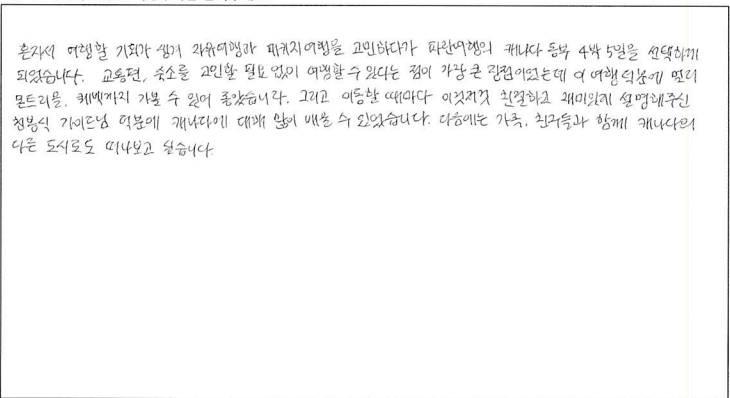 혼자서 여행할 기회가 생겨 자유여행과 패키지여행을 고민하다가 파란여행의 캐나다 동부 4박 5일을 선택하게
되었습니다. 교통편, 숙소를 고민할 필요 없이 여행할 수 있다는 점이 가장 큰 장점이었는데 이 여행 덕분에 멀리
몬트리올, 퀘벡까지 가볼 수 있어 좋았습니다. 그리고 이동할 때마다 이것저것 친절하고 재미있게 설명해주신
가이드님 덕분에 캐나다에 대해 많이 배울 수 있었습니다. 다음에는 가족, 친구들과 함께 캐나다의
다른 도시로도 떠나보고 싶습니다.